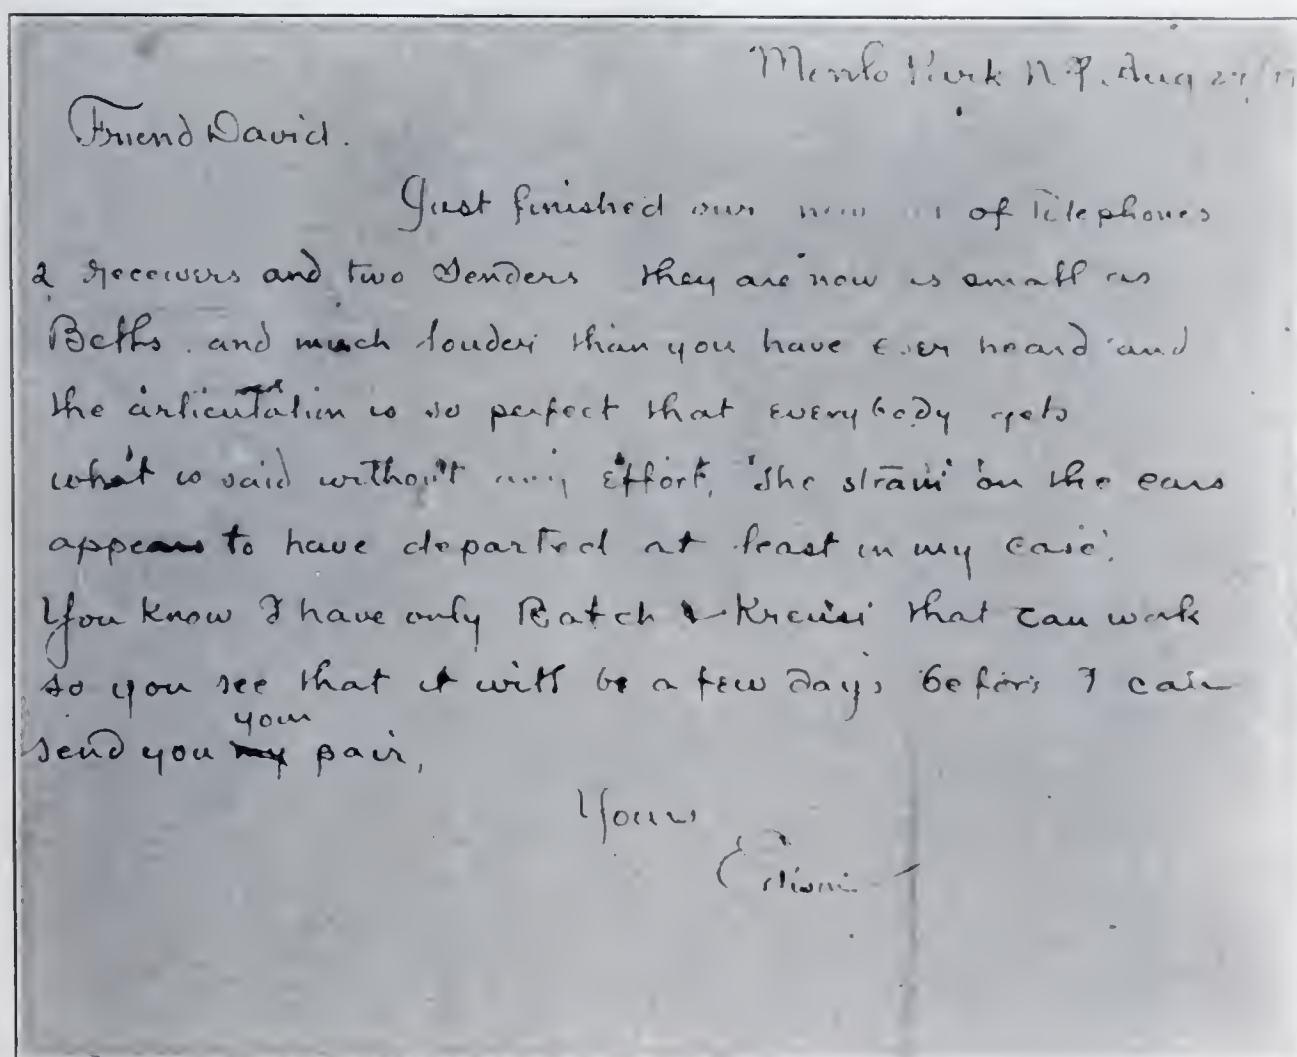 Menlo Park N.J. Aug
Friend David.
Just finished our new of Telephones
2 receivers and two Senders they are now as small as
Bells. and much louder than you have ever heard and
the articulation is so perfect that everybody gets
what is said without any effort, The strain on the ears
appears to have departed at least in my case.
You know I have only Batch & Kreusi that can work
so you see that it will be a few days before I can
your
send you my pair,
Yours
Edison